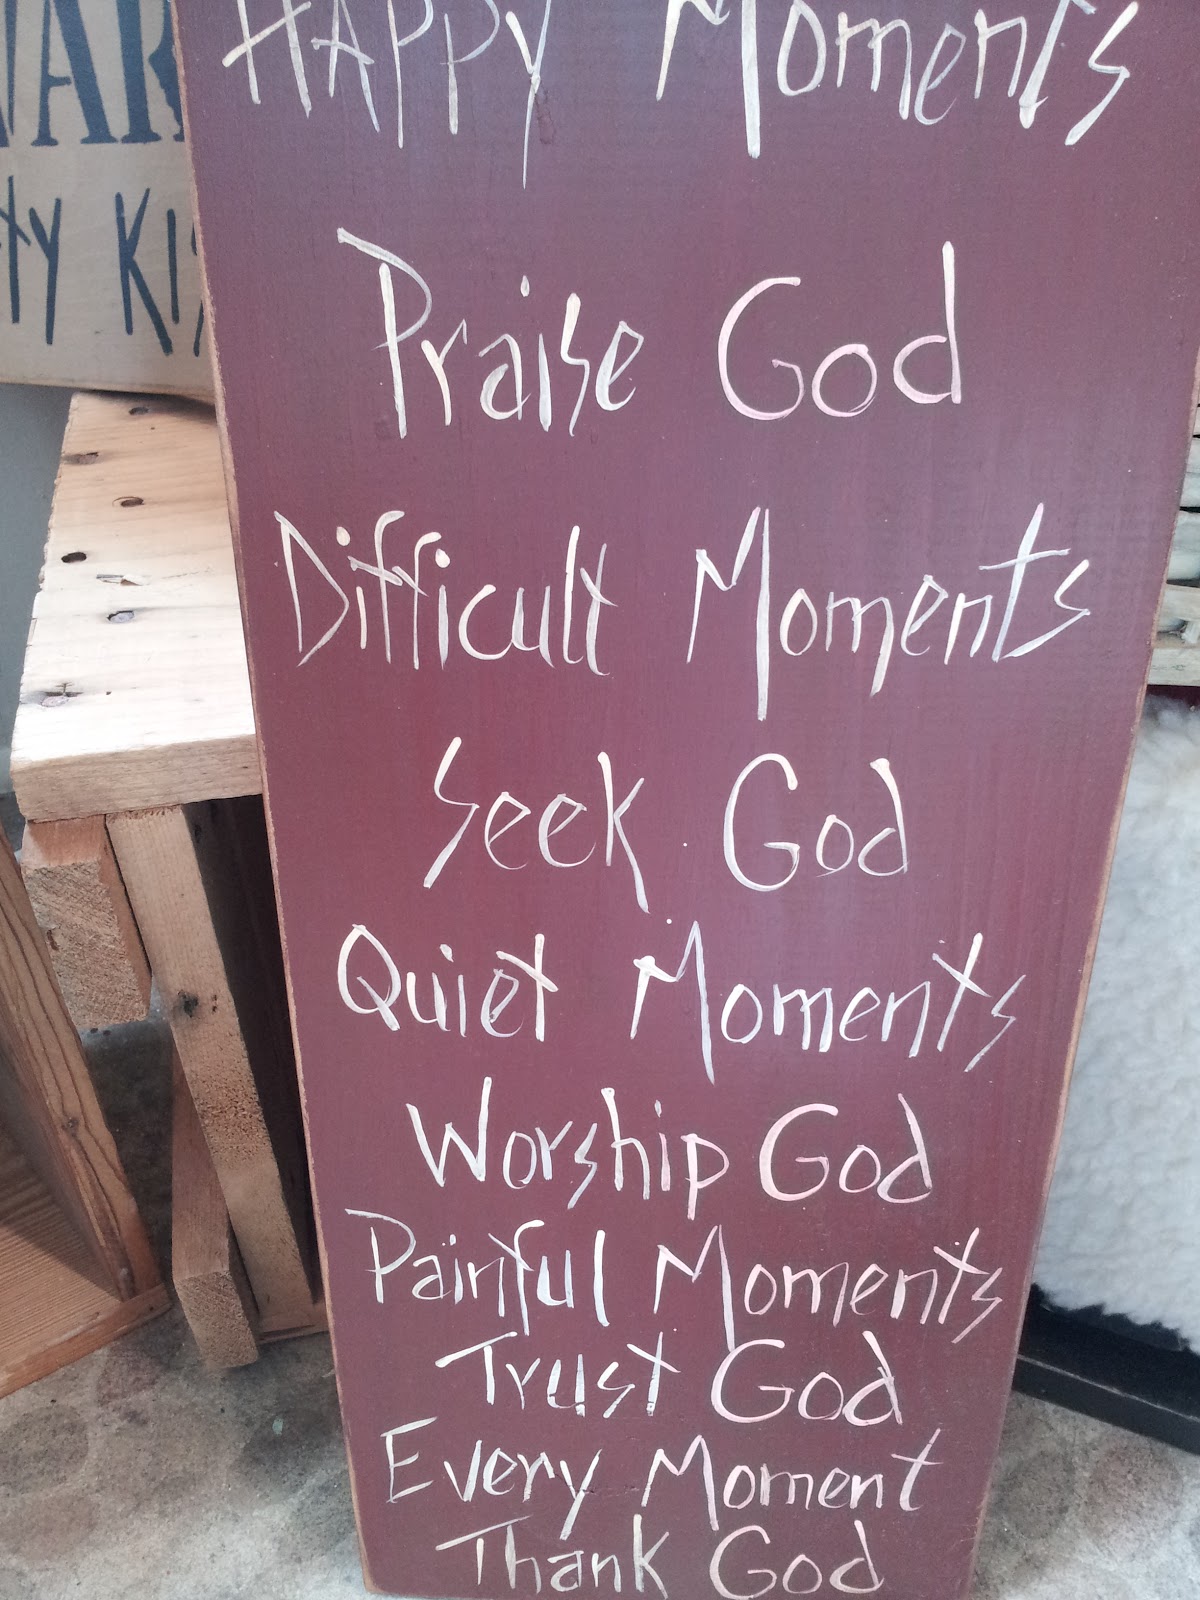 HAPPY Moments
Praise God
Difficult Moments
Seek God
Quiet Moments
Worship God
Painful Moments
Trust God
Every Moment
Thank God